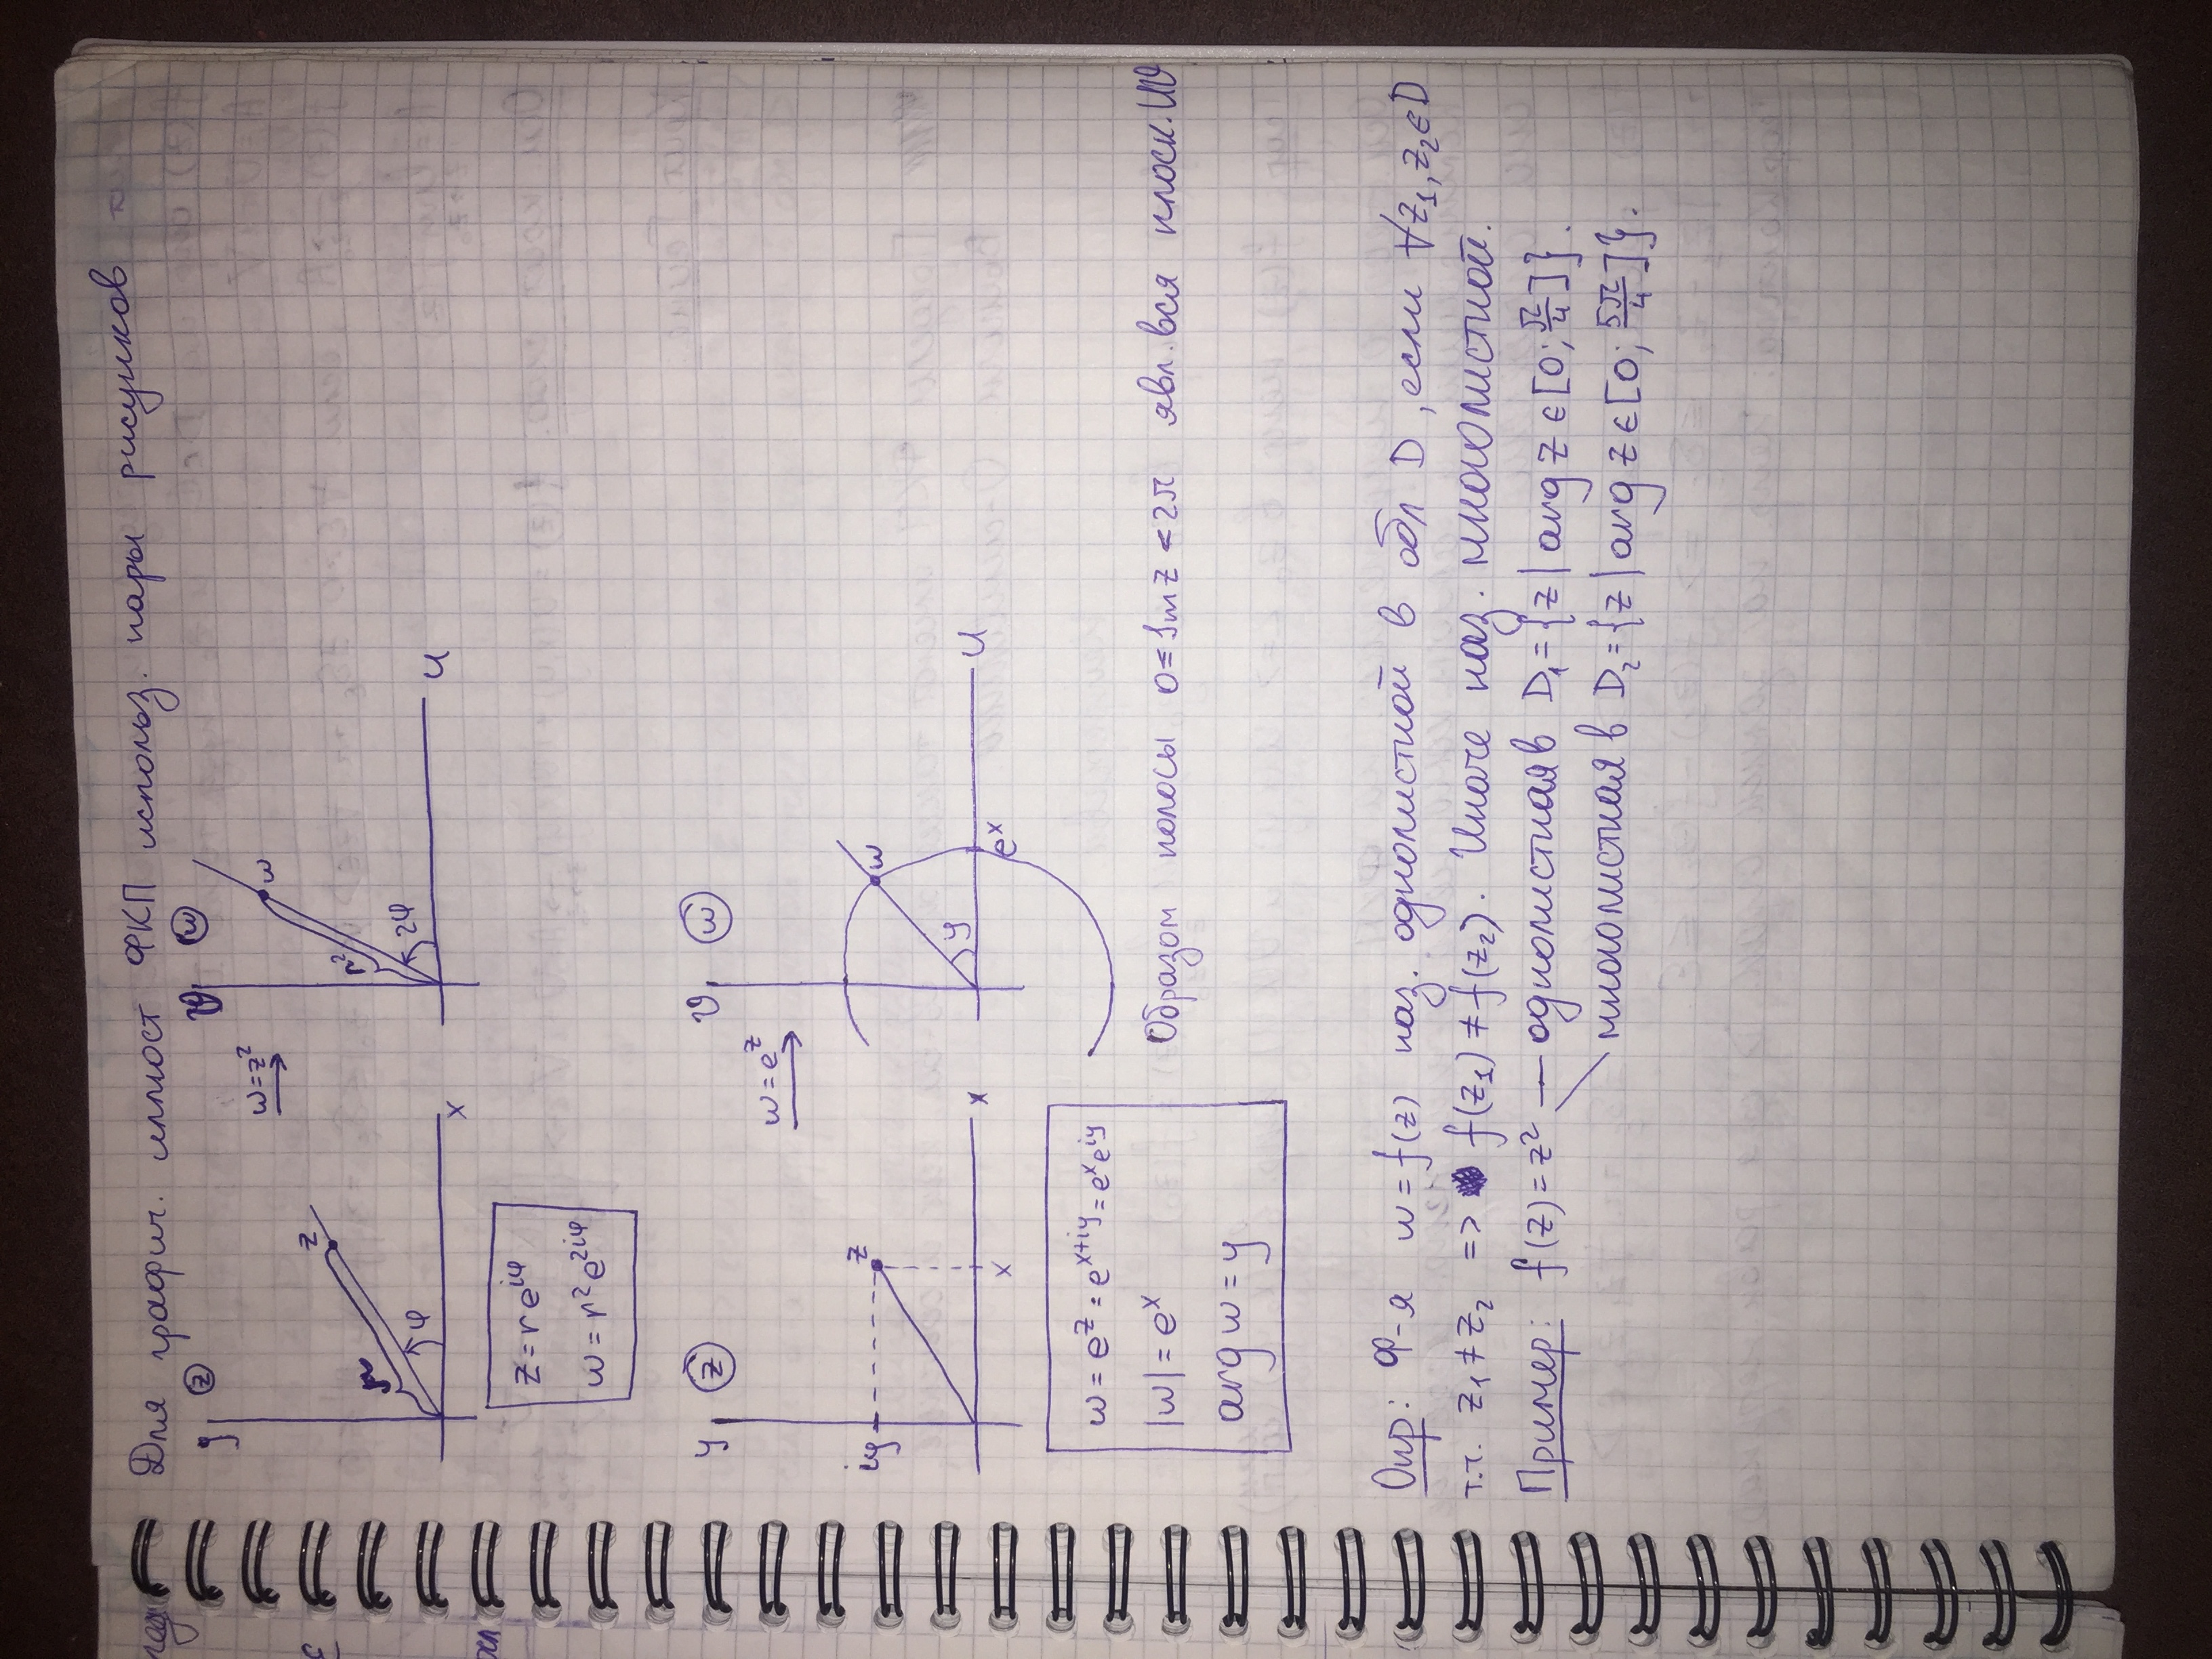 Для графич. иллюст ФКП использ. пары рисунков
y z
w=z²
v w
z
r
φ
x
w
r²
2φ
u
z=re^{iφ}
w=r²e^{2iφ}
y z
w=e^z
v w
iy
z
x
x
w
y
e^x
u
w=e^z=e^{x+iy}=e^x e^{iy}
|w|=e^x
arg w=y
Образом полосы 0≤Im z<2π явл. вся плоск. uv
Опр: Ф-я w=f(z) наз. однолистной в обл D, если ∀z₁,z₂∈D
т.ч. z₁≠z₂ => f(z₁)≠f(z₂). Иначе наз. многолистной.
Пример: f(z)=z² — однолистная в D₁={z|arg z∈[0;π/4]}.
многолистная в D₂={z|arg z∈[0;5π/4]}.